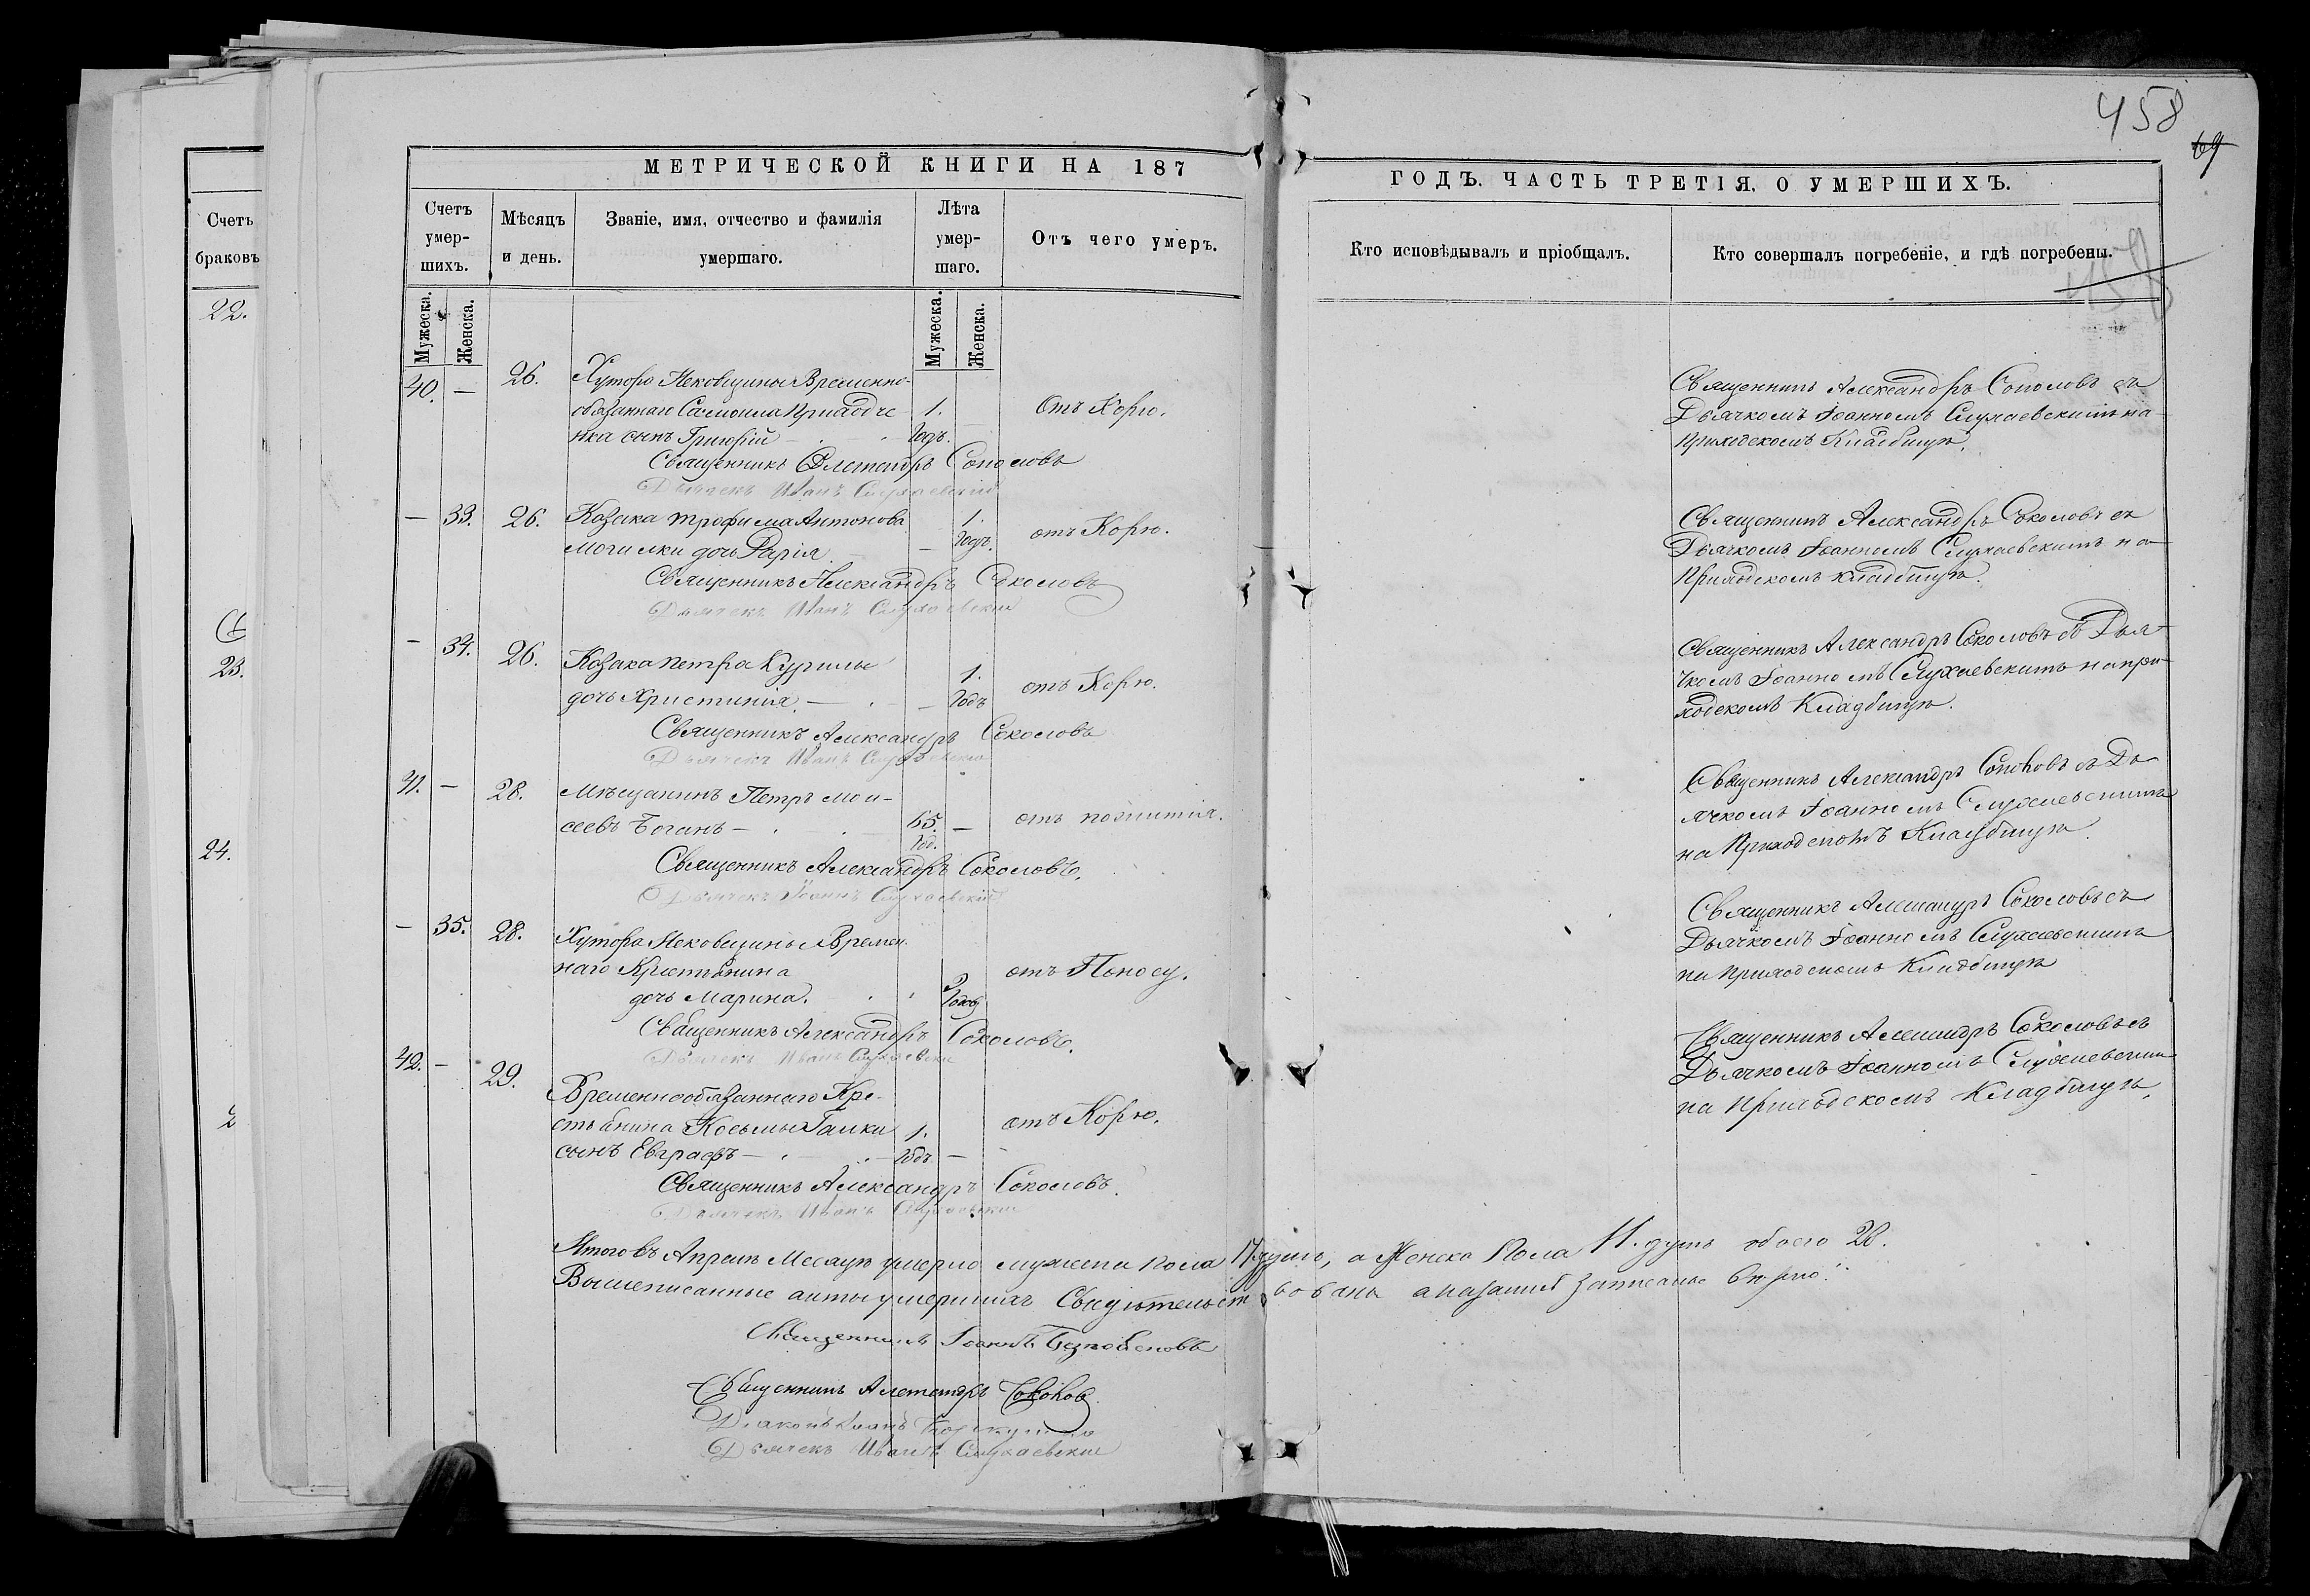 458
69
МЕТРИЧЕСКОЙ КНИГИ НА 187
ГОДЪ. ЧАСТЬ ТРЕТІЯ, О УМЕРШИХЪ.
Счетъ браковъ
22.
23.
24.
Счетъ умер-
шихъ.
Мѣсяцъ
и день.
Званіе, имя, отчество и фамилія
умершаго.
Лѣта
умер-
шаго.
Отъ чего умеръ.
Кто исповѣдывалъ и пріобщалъ.
Кто совершалъ погребеніе, и гдѣ погребены.
Мужеска. Женска.
Мужеска. Женска.
40. — 26. Хутора Временно-
обязаннаго Самоила
сынъ Григорій — 1. Годъ. Отъ Корю.
Священникъ Александръ Соколовъ
Дьячекъ Иванъ Слухаевскій
Священникъ Александръ Соколовъ съ
Дьячкомъ Іоанномъ Слухаевскимъ на
приходскомъ Кладбищѣ.
— 33. 26. Козака Трофима Антонова
Могилки дочь — 1. Годъ. отъ Корю.
Священникъ Александръ Соколовъ
Дьячекъ Иванъ Слухаевскій
Священникъ Александръ Соколовъ съ
Дьячкомъ Іоанномъ Слухаевскимъ на
Приходскомъ кладбищѣ.
— 34. 26. Козака Петра Курилы
дочь Христинія. — 1. Годъ отъ Корю.
Священникъ Александръ Соколовъ
Дьячекъ Иванъ Слухаевскій
Священникъ Александръ Соколовъ съ Дья-
чкомъ Іоанномъ Слухаевскимъ на при-
ходскомъ Кладбищѣ.
41. — 28. Мѣщанинъ Петръ Мои-
сеевъ Боганъ — 65. год. — отъ
Священникъ Александръ Соколовъ.
Дьячекъ Іоаннъ Слухаевскій
Священникъ Александръ Соколовъ съ Дь-
ячкомъ Іоанномъ Слухаевскимъ
на Приходскомъ Кладбищѣ.
— 35. 28. Хутора Времен-
наго Крестьянина
дочь Марина. отъ Поносу.
Священникъ Александръ Соколовъ.
Дьячекъ Иванъ Слухаевскій
Священникъ Александръ Соколовъ съ
Дьячкомъ Іоанномъ Слухаевскимъ
на приходскомъ Кладбищѣ
42. — 29. Временнообязаннаго Кре-
стьянина Косьмы Галки
сынъ Евграфъ — 1. Годъ — отъ Корю.
Священникъ Александръ Соколовъ.
Дьячекъ Иванъ Слухаевскій
Священникъ Александръ Соколовъ съ
Дьячкомъ Іоанномъ Слухаевскимъ
на Приходскомъ Кладбищѣ.
Итого въ Апрелѣ Месяцѣ умерло мужеска пола 17 душъ, а Женска Пола 11. душъ обоего 28.
Вышеписанные акты умершихъ Свидѣтельствованы
Священникъ Іоаннъ
Священникъ Александръ Соколовъ
Діаконъ
Дьячекъ Иванъ Слухаевскій